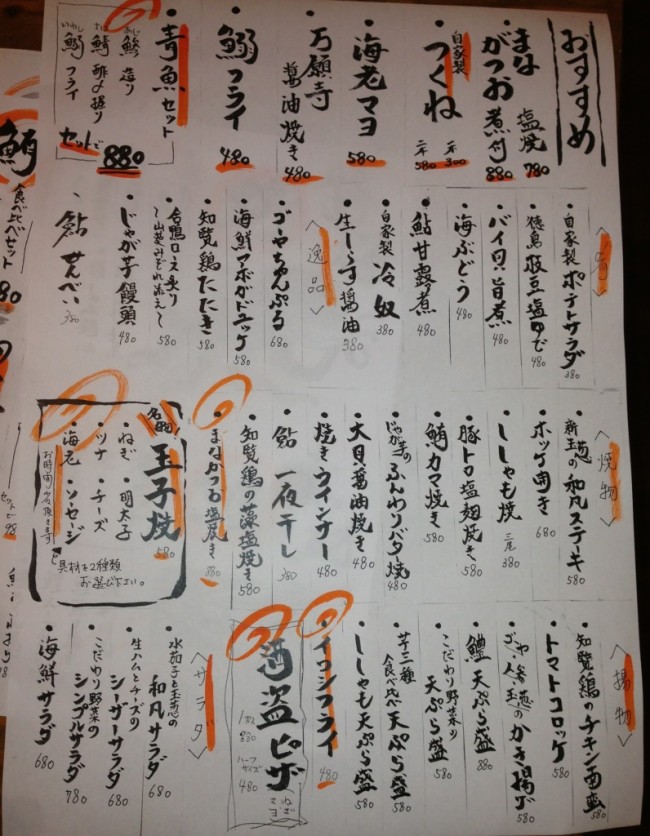 おすすめ
まながつお 塩焼 780
煮付 880
自家製 つくね 一本 300
二本 580
・海老マヨ 580
・万願寺 醤油焼き 480
・鰯フライ 480
・青魚セット
鯵 造り
鯖 酢〆握り
鰯 フライ
セットで 880
・自家製 ポテトサラダ 380
・徳島 枝豆塩ゆで 480
・バイ貝旨煮 480
・海ぶどう 480
・鮎甘露煮 480
・自家製 冷奴 380
・生しらす醤油 380
〈逸品〉
・ゴーヤちゃんぷる 680
・海鮮アボガドユッケ 580
・知覧鶏たたき 580
・合鴨ロース炙り
〜山葵みぞれ添え〜 580
・じゃが芋饅頭 480
・鮎せんべい 380
〈焼物〉
・新玉葱の和凡ステーキ 580
・ホッケ開き 680
・ししゃも焼 三尾 380
・豚トロ塩麹焼き 580
・鮪カマ焼き 580
・じゃが芋のふんわりバター焼 480
・大貝醤油焼き 480
・焼きウインナー 480
・鮎 一夜干し 380
・知覧鶏の藻塩焼き 580
・まながつお塩焼き 880
名物 玉子焼 580
・ねぎ ・明太子
・ツナ ・チーズ
・海老 ・ソーセージ
お時間少々頂きます
具材を2種類
お選び下さい。
〈揚物〉
・知覧鶏のチキン南蛮 580
・トマトコロッケ 580
・鱧 天ぷら盛 880
・こだわり野菜の天ぷら盛 580
・芋三種 食べ比べ 天ぷら盛 580
・ししゃも天ぷら盛 580
・イワシフライ 480
酒盗ピザ
ハーフサイズ 480
〈サラダ〉
・水茄子と玉葱の和凡サラダ 680
・生ハムとチーズのシーザーサラダ 680
・こだわり野菜のシンプルサラダ 780
・海鮮サラダ 680
食べ比べセット